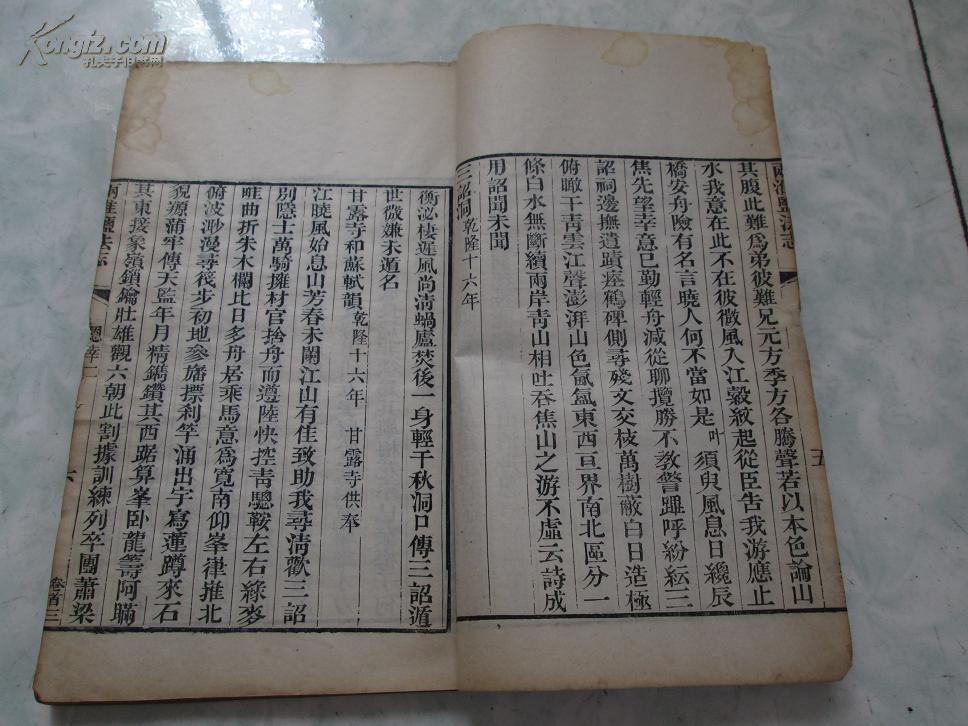 Kongfz.com
孔夫子旧书网
兩淮鹽法志
五
其腹此難爲弟彼難兄元方季方各騰聲若以本色論山
水我意在此不在彼微風入江縠紋起從臣告我游應止
橋安舟險有名言曉人何不當如是叶須臾風息日纔辰
焦先望幸意已勤輕舟減從聊攬勝不教警蹕呼紛紜三
詔祠邊撫遺蹟瘞鶴碑側尋殘文交枝萬樹蔽白日造極
俯瞰干靑雲江聲澎湃山色氤氳東西亘界南北區分一
條白水無斷續兩岸靑山相吐吞焦山之游不虛云詩成
用詔聞未聞
三詔洞乾隆十六年
衡泌棲遲風尚淸蝸廬焚後一身輕千秋洞口傳三詔遁
世微嫌未遁名
甘露寺和蘇軾韻乾隆十六年 甘露寺供奉
江曉風始息山芳春未闌江山有佳致助我尋淸歡三詔
別隱士萬騎擁材官捨舟而遵陸快控靑驄鞍左右綠麥
畦曲折朱木欄比日多舟居乘馬意爲寬南仰峯嵂推北
俯波渺漫尋筏步初地參旛摽刹竿涌出宇寫蓮蹲來石
猊㹳蒲牢傳天監年月精鐫鑽其西踞算峯卧龍籌阿瞞
其東接象嶺鎖鑰壯雄觀六朝此割據訓練列卒團蕭梁
兩淮鹽法志
恩幸二
六
卷首三